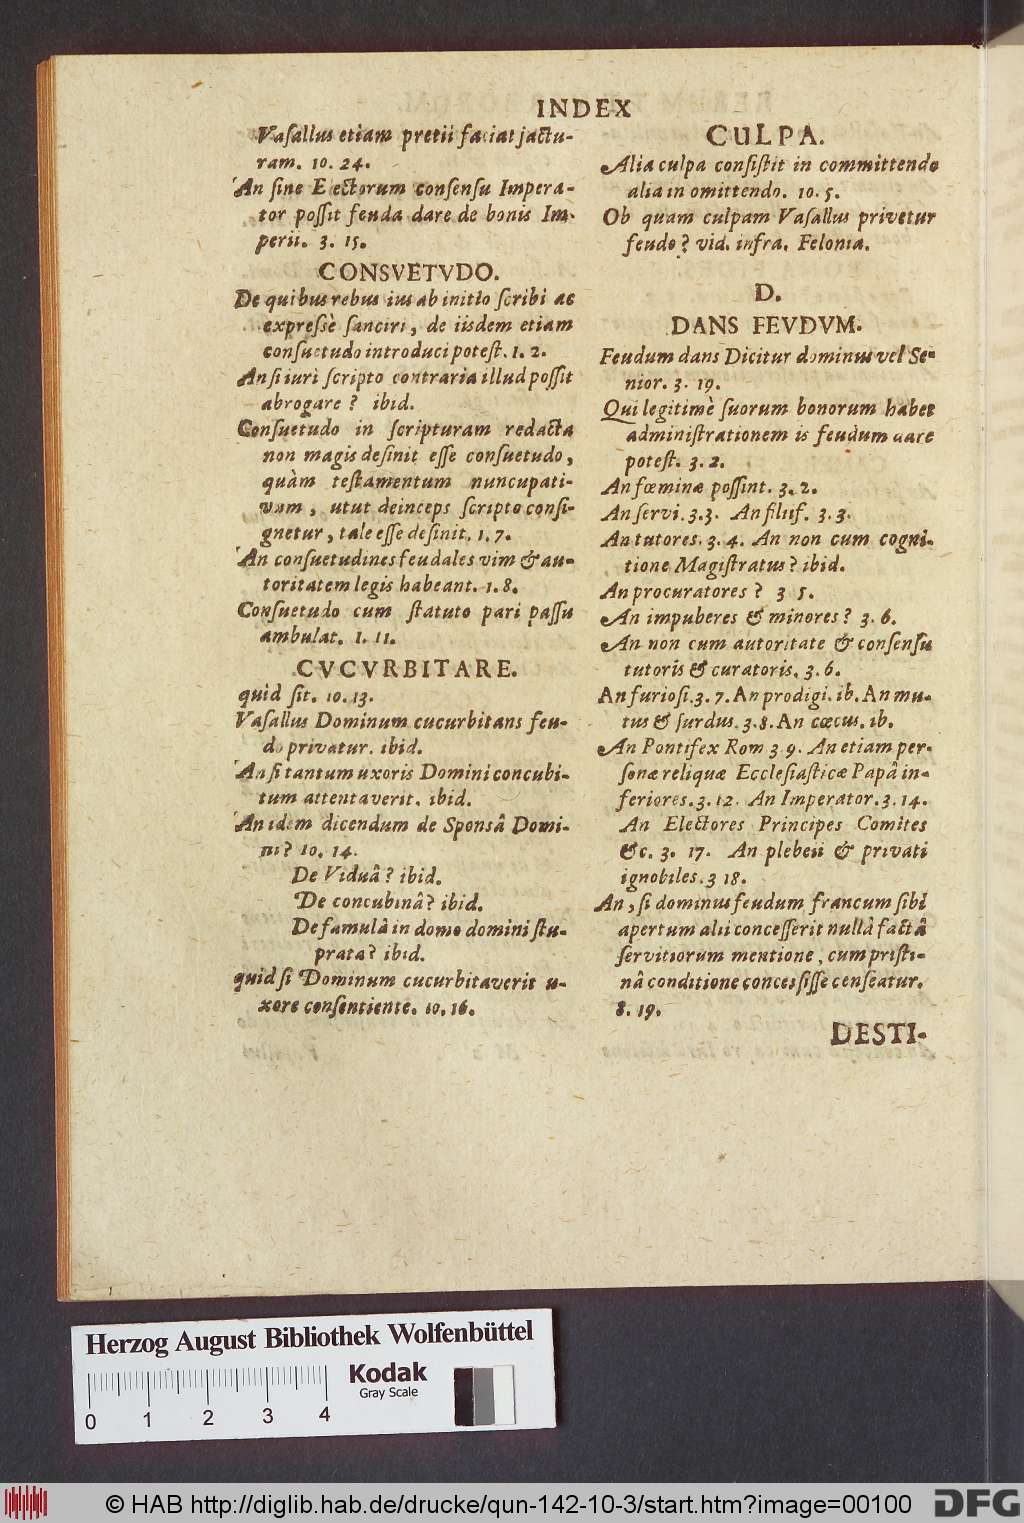 INDEX
Vaſallus etiam pretii faciat jactu-
ram. 10. 24.
An ſine Electorum conſenſu Impera-
tor poſſit feuda dare de bonis Im-
perii. 3. 15.
CONSVETVDO.
De quibus rebus ius ab initio ſcribi ac
expreſsè ſanciri, de iisdem etiam
conſuetudo introduci poteſt. 1. 2.
An ſi iuri ſcripto contraria illud poſſit
abrogare ? ibid.
Conſuetudo in ſcripturam redacta
non magis deſinit eſſe conſuetudo,
quàm teſtamentum nuncupati-
vum, utut deinceps ſcripto conſi-
gnetur, tale eſſe deſinit. 1. 7.
An conſuetudines feudales vim & au-
toritatem legis habeant. 1. 8.
Conſuetudo cum ſtatuto pari paſſu
ambulat. 1. 11.
CVCVRBITARE.
quid ſit. 10. 13.
Vaſallus Dominum cucurbitans feu-
do privatur. ibid.
An ſi tantum uxoris Domini concubi-
tum attentaverit. ibid.
An idem dicendum de Sponsâ Domi-
ni? 10. 14.
De Viduâ? ibid.
De concubinâ? ibid.
De famulâ in domo domini ſtu-
prata? ibid.
quid ſi Dominum cucurbitaverit u-
xore conſentiente. 10. 16.
CULPA.
Alia culpa conſiſtit in committendo
alia in omittendo. 10. 5.
Ob quam culpam Vaſallus privetur
feudo? vid. infra. Felonia.
D.
DANS FEVDVM.
Feudum dans Dicitur dominus vel Se-
nior. 3. 19.
Qui legitimè ſuorum bonorum habet
adminiſtrationem is feudum dare
poteſt. 3. 2.
An fœminæ poſſint. 3. 2.
An ſervi. 3. 3. An filiuſ. 3. 3.
An tutores. 3. 4. An non cum cogni-
tione Magiſtratus? ibid.
An procuratores ? 3 5.
An impuberes & minores? 3. 6.
An non cum autoritate & conſenſu
tutoris & curatoris. 3. 6.
An furioſi. 3. 7. An prodigi. ib. An mu-
tus & ſurdus. 3. 8. An cœcus. ib.
An Pontifex Rom 3. 9. An etiam per-
ſonæ reliquæ Eccleſiaſticæ Papâ in-
feriores. 3. 12. An Imperator. 3. 14.
An Electores Principes Comites
&c. 3. 17. An plebeii & privati
ignobiles. 3 18.
An, ſi dominus feudum francum ſibi
apertum alii conceſſerit nullâ factâ
ſervitiorum mentione, cum priſti-
nâ conditione conceſſiſſe cenſeatur.
8. 19.
DESTI-
Herzog August Bibliothek Wolfenbüttel
Kodak
Gray Scale
0 1 2 3 4
© HAB http://diglib.hab.de/drucke/qun-142-10-3/start.htm?image=00100
DFG